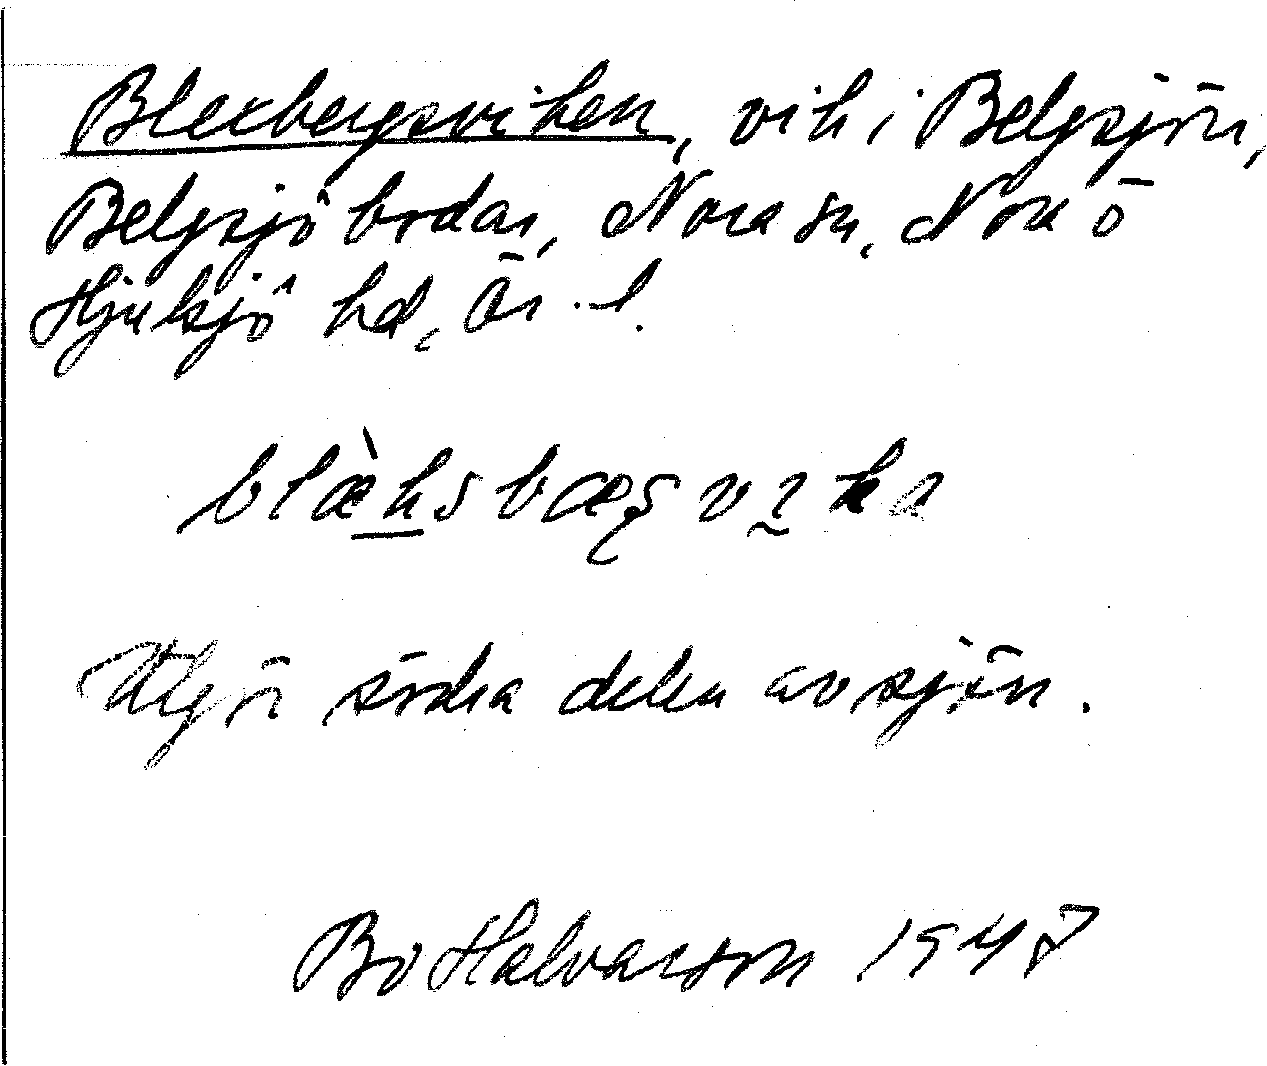 Blexbergsviken, vik i Belgsjön,
Belgsjöbodar, Nora sn, Nora o
Hjulsjö hd, Ör. l.
blæ̀ksbærsvika
Utgör södra delen av sjön.
Bo Halvarson 1947